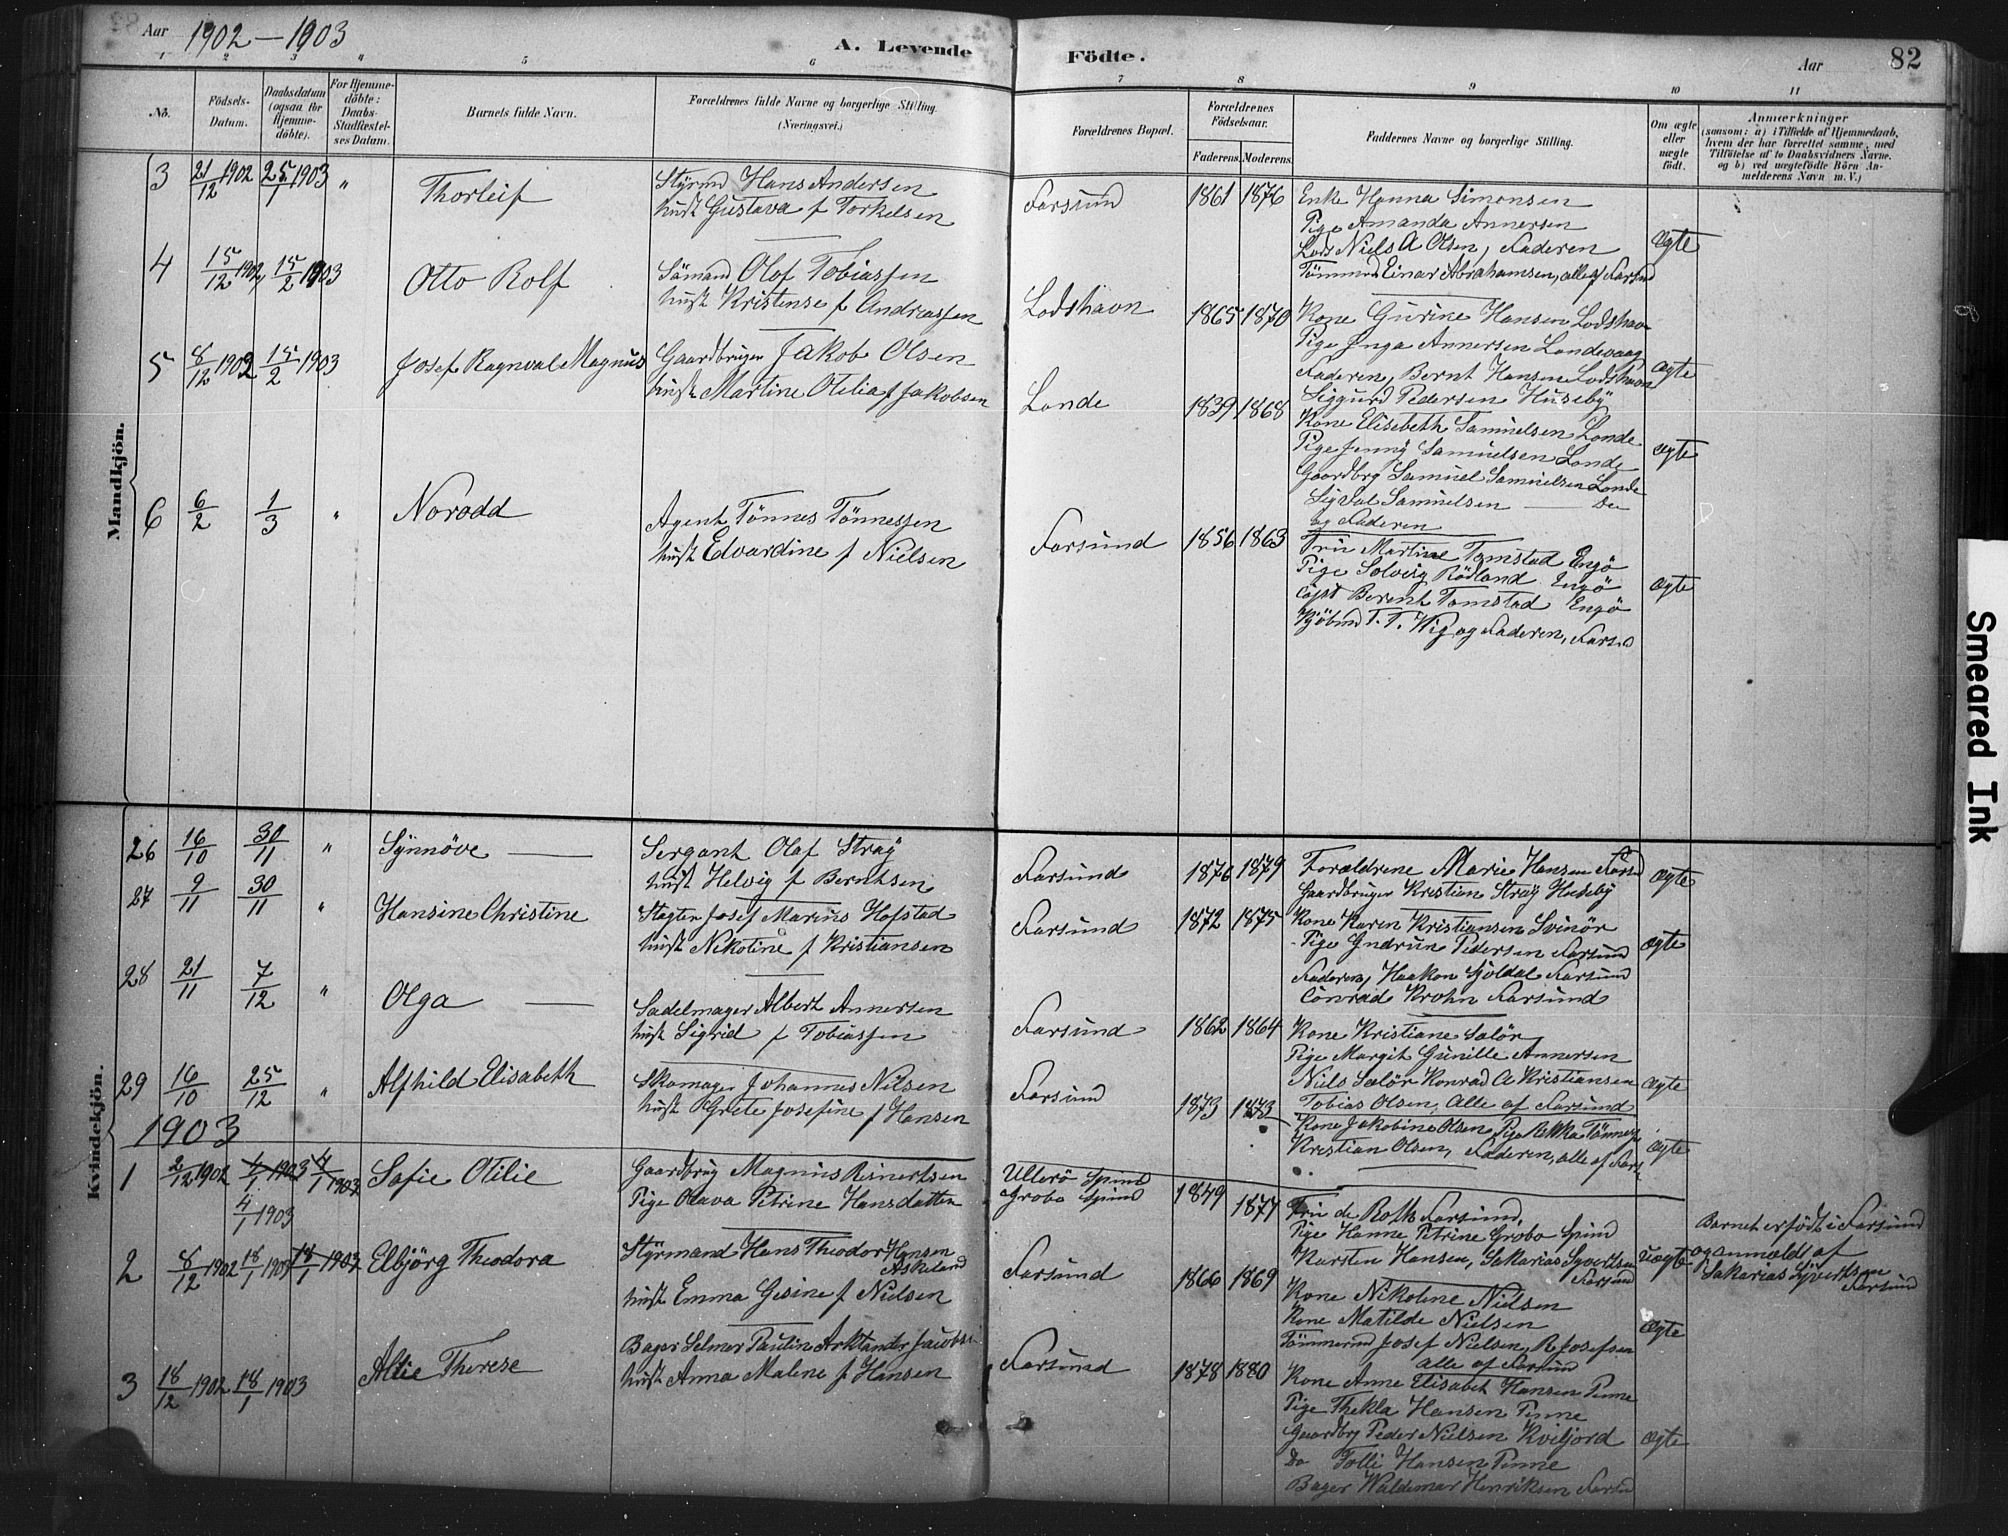 Aar 1902–1903
A. Levende Födte.
Aar 82
1 2 3 4 5 6 7 8 9 10 11
No.
Födsels-Datum.
Daabsdatum (ogsaa for Hjemmedöbte).
For Hjemmedöbte: Daabs-Stadfæstelses Datum.
Barnets fulde Navn.
Forældrenes fulde Navne og borgerlige Stilling. (Næringsvei.)
Forældrenes Bopæl.
Forældrenes Födselsaar.
Faderens. Moderens.
Faddernes Navne og borgerlige Stilling.
Om ægte eller uægte födt.
Anmærkninger
(saasom: a) i Tilfælde af Hjemmedaab, hvem der har forrettet samme, med Tilföielse af to Daabsvidners Navne, og b) ved uægtefödte Börn Anmelderens Navn m. V.)
Mandkjön.
3 21/12 1902 25/1 1903 " Thorleif
Styrmd Hans Andersen
hust Gustava f Torkelsen
Farsund 1861 1876
Enke Hanna Simonsen
Pige Amanda Annersen
Lods Niels A Olsen, Faderen
Tömmmd Einar Abrahamsen, alle af Farsund
Ægte
4 15/12 1902 15/2 1903 Otto Rolf
Sömand Olof Tobiassen
hust Kristense f Andreassen
Lodshavn 1865 1870
Kone Gurine Hansen Lodshavn
Pige Inga Annersen Londevaag
Faderen, Bernt Hansen Lodshavn
Siggurd Pedersen Huseby
Ægte
5 8/12 1902 15/2 1903 Josef Ragnval Magnus
Gaardbruger Jakob Olsen
hust Martine Otilia f Jakobsen
Londe 1839 1868
Kone Elisebeth Samuelsen Londe
Pige Jenny Samuelsen Londe
Gaardbrg Samuel Samuelsen Londe
Sigval Samuelsen — Do
og Faderen
Ægte
6 6/2 1/3 " Norodd
Agent Tönnes Tönnessen
hust Edvardine f Nielsen
Farsund 1856 1863
Fru Martine Tomstad Engö
Pige Solveig Rödland Engö
Capt Berent Tomstad Engö
Kjöbmd T. T. Wig og Faderen, Farsd
Ægte
Kvindekjön.
26 16/10 30/11 " Synnöve —
Sergant Olaf Stray
hust Helvig f Berntsen
Farsund 1876 1879
Forældrene Marie Hansen Farsd
Gaardbruger Kristian Stray Huseby
Ægte
27 9/11 30/11 " Hansine Christine
Slagter Josef Marius Hofstad
hust Nikoline f Kristiansen
Farsund 1872 1875
Kone Karen Kristiansen Svinör
Pige Gudrun Pedersen Farsund
Faderen, Haakon Sjöldal Farsund
Conrad Krohn Farsund
Ægte
28 21/11 7/12 " Olga —
Sadelmager Albert Annersen
hust Sigrid f Tobiassen
Farsund 1862 1864
Kone Kristiane Salör
Pige Margit Gunille Annersen
Niels Salör Konrad A Kristiansen
Tobias Olsen, Alle af Farsund
Ægte
29 16/10 25/12 " Alfhild Elisabeth
Skomager Johannes Nilsen
hust Grete Josefine f Hansen
Farsund 1873 1873
Kone Jakobine Olsen, Pige Rikka Tönnes
Kristian Olsen, Faderen, alle af Fars
Ægte
1903
1 2/12 1902 4/1 1903 4/1 1903 Sofie Otilie
4/1 1903
Gaardbrug Magnus Reinertsen
Pige Olava Petrine Hansdatter
Ullerö Spind
Grobo Spind
1849 1877
Fru de Rolls Farsund,
Pige Hanne Petrine Grobo Spind
Karsten Hansen, Sakarias Syvertsen
Farsund
Uægte
Barnet er födt i Farsund
og anmeldt af
Sakarias Syvertsen
Farsund
2 8/12 1902 18/1 1903 18/1 1903 Elbjörg Theodora
Styrmand Hans Theodor Hansen
Askeland
hust Emma Gesine f Nielsen
Farsund 1866 1869
Kone Nikoline Nielsen
Kone Matilde Nielsen
Tömmermd Josef Nielsen, R Josefsen
alle af Farsund
Ægte
3 18/12 1902 18/1 1903 Allie Therese
Bager Selmer Paulin Arktander Jacobsen
hust Anna Malene f Hansen
Farsund 1878 1880
Kone Anne Elisabet Hansen Penne
Pige Thekla Hansen Penne
Gaardbrg Peder Nielsen Kviljord
Do Tolli Hansen Penne
Bager Waldemar Henriksen Farsd
Ægte
Smeared Ink